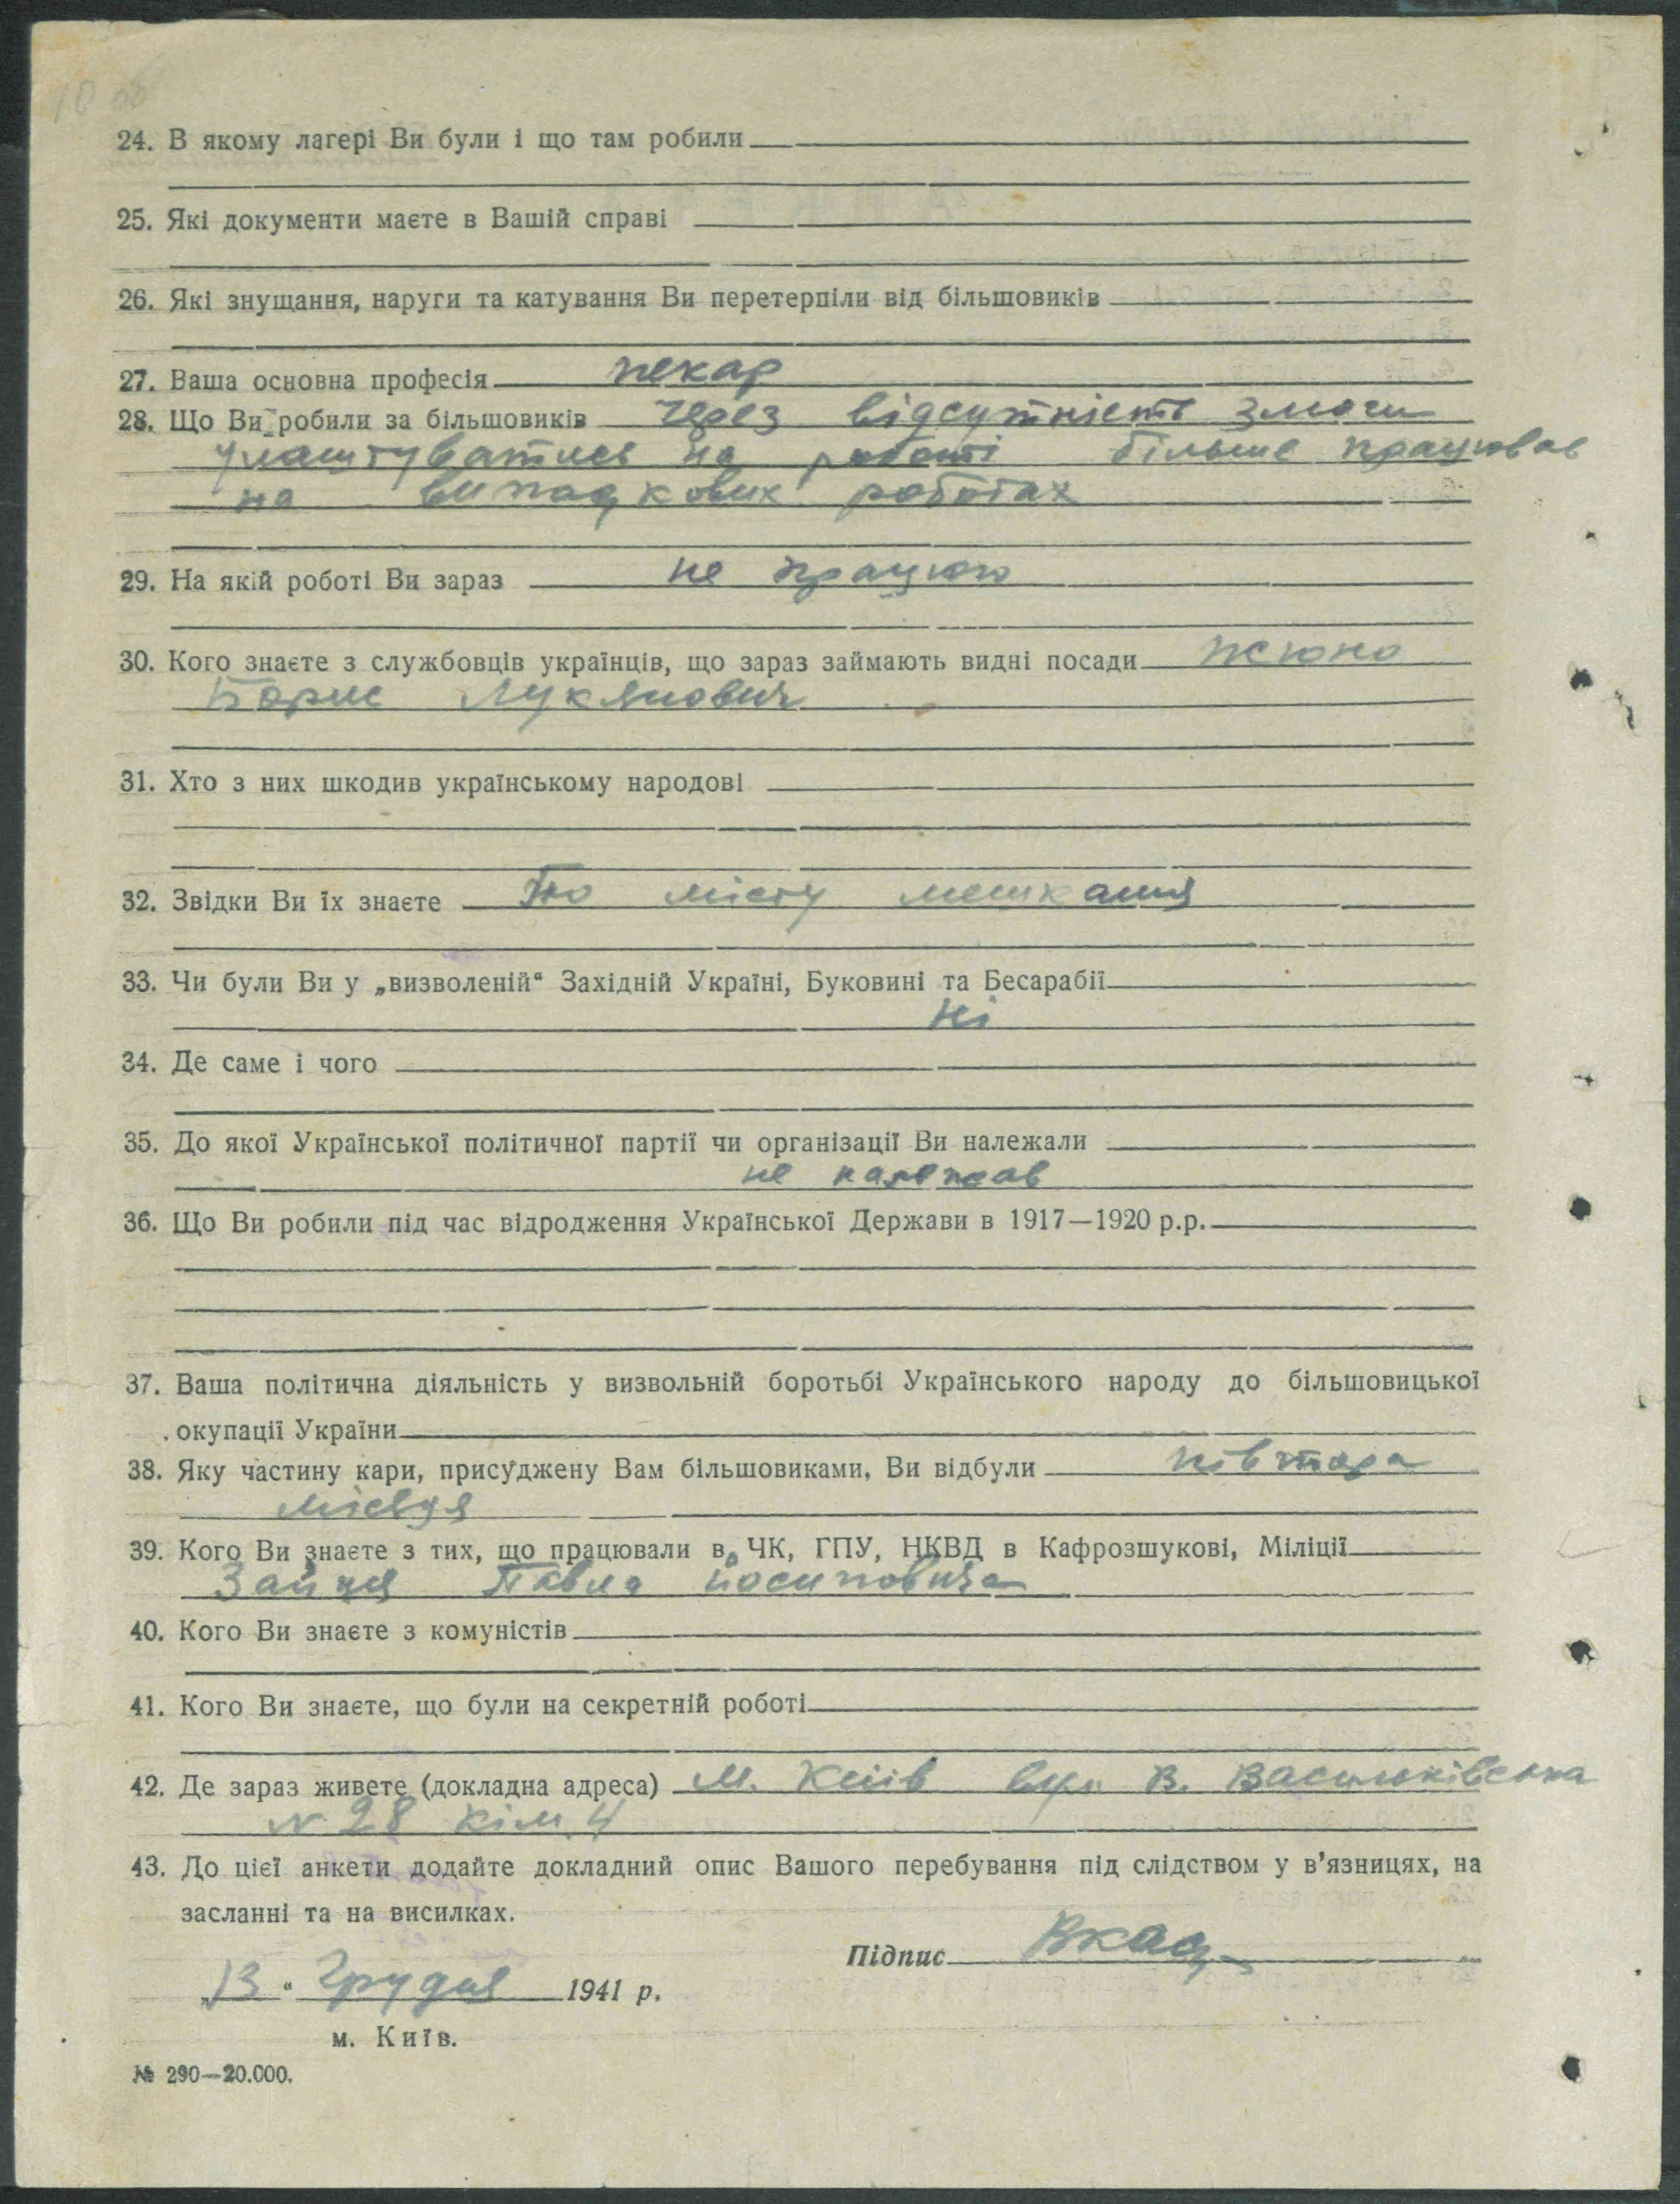 10 об
24. В якому лагері Ви були і що там робили
25. Які документи маєте в Вашій справі
26. Які знущання, наруги та катування Ви перетерпіли від більшовиків
27. Ваша основна професія пекар
28. Що Ви робили за більшовиків через відсутність змоги
улаштуватись на роботі більше працював
на випадкових роботах
29. На якій роботі Ви зараз не працюю
30. Кого знаєте з службовців українців, що зараз займають видні посади
Борис Лукянович
31. Хто з них шкодив українському народові
32. Звідки Ви їх знаєте По місту мешкання
33. Чи були Ви у „визволеній“ Західній Україні, Буковині та Бесарабії
Ні
34. Де саме і чого
35. До якої Української політичної партії чи організації Ви належали
не належав
36. Що Ви робили під час відродження Української Держави в 1917—1920 р.р.
37. Ваша політична діяльність у визвольній боротьбі Українського народу до більшовицької
окупації України
38. Яку частину кари, присуджену Вам більшовиками, Ви відбули півтора
місяця
39. Кого Ви знаєте з тих, що працювали в ЧК, ГПУ, НКВД в Кафрозшукові, Міліції
Зайця Павла йосиповича
40. Кого Ви знаєте з комуністів
41. Кого Ви знаєте, що були на секретній роботі
42. Де зараз живете (докладна адреса) м. Київ вул. В. Васильківська
N 28 кім. 4
43. До цієї анкети додайте докладний опис Вашого перебування під слідством у в’язницях, на
засланні та на висилках.
Підпис
13 “ Грудня 1941 р.
м. Київ.
№ 290—20.000.